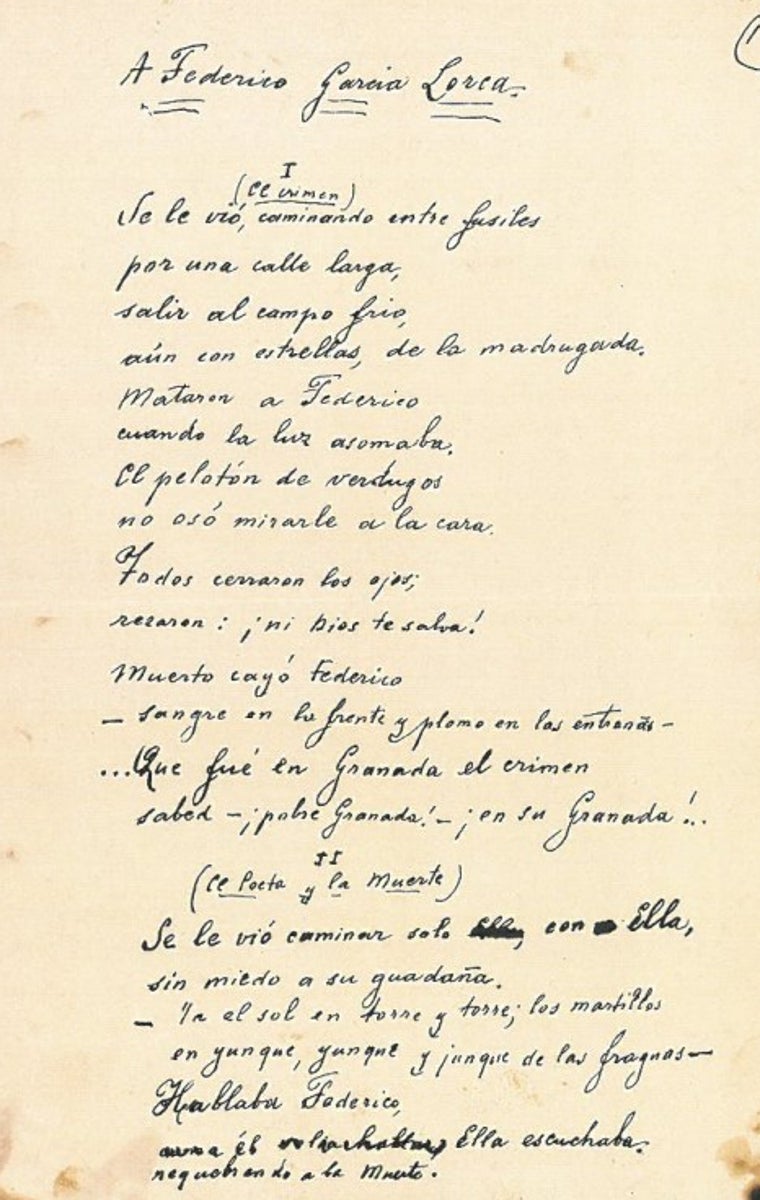 A Federico García Lorca.
I
(El crimen)
Se le vió, caminando entre fusiles
por una calle larga,
salir al campo frio,
aún con estrellas, de la madrugada.
Mataron a Federico
cuando la luz asomaba.
El pelotón de verdugos
no osó mirarle a la cara.
Todos cerraron los ojos;
rezaron: ¡ni Dios te salva!
Muerto cayó Federico
— sangre en la frente y plomo en las entrañas —
...Que fué en Granada el crimen
sabed — ¡pobre Granada! — ¡en su Granada!..
II
(El Poeta y la Muerte)
Se le vió caminar solo con Ella,
sin miedo a su guadaña.
— Ya el sol en torre y torre; los martillos
en yunque, yunque y yunque de las fraguas —
Hablaba Federico,
Ella escuchaba.
requebrando a la Muerte.